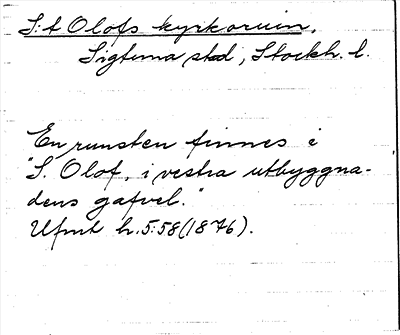 S:t Olofs kyrkoruin,
Sigtuna stad, Stockh. l.
En runsten finnes i
"S. Olof, i vestra utbyggna-
dens gafvel."
Ufmt h. 5:58 (1876).